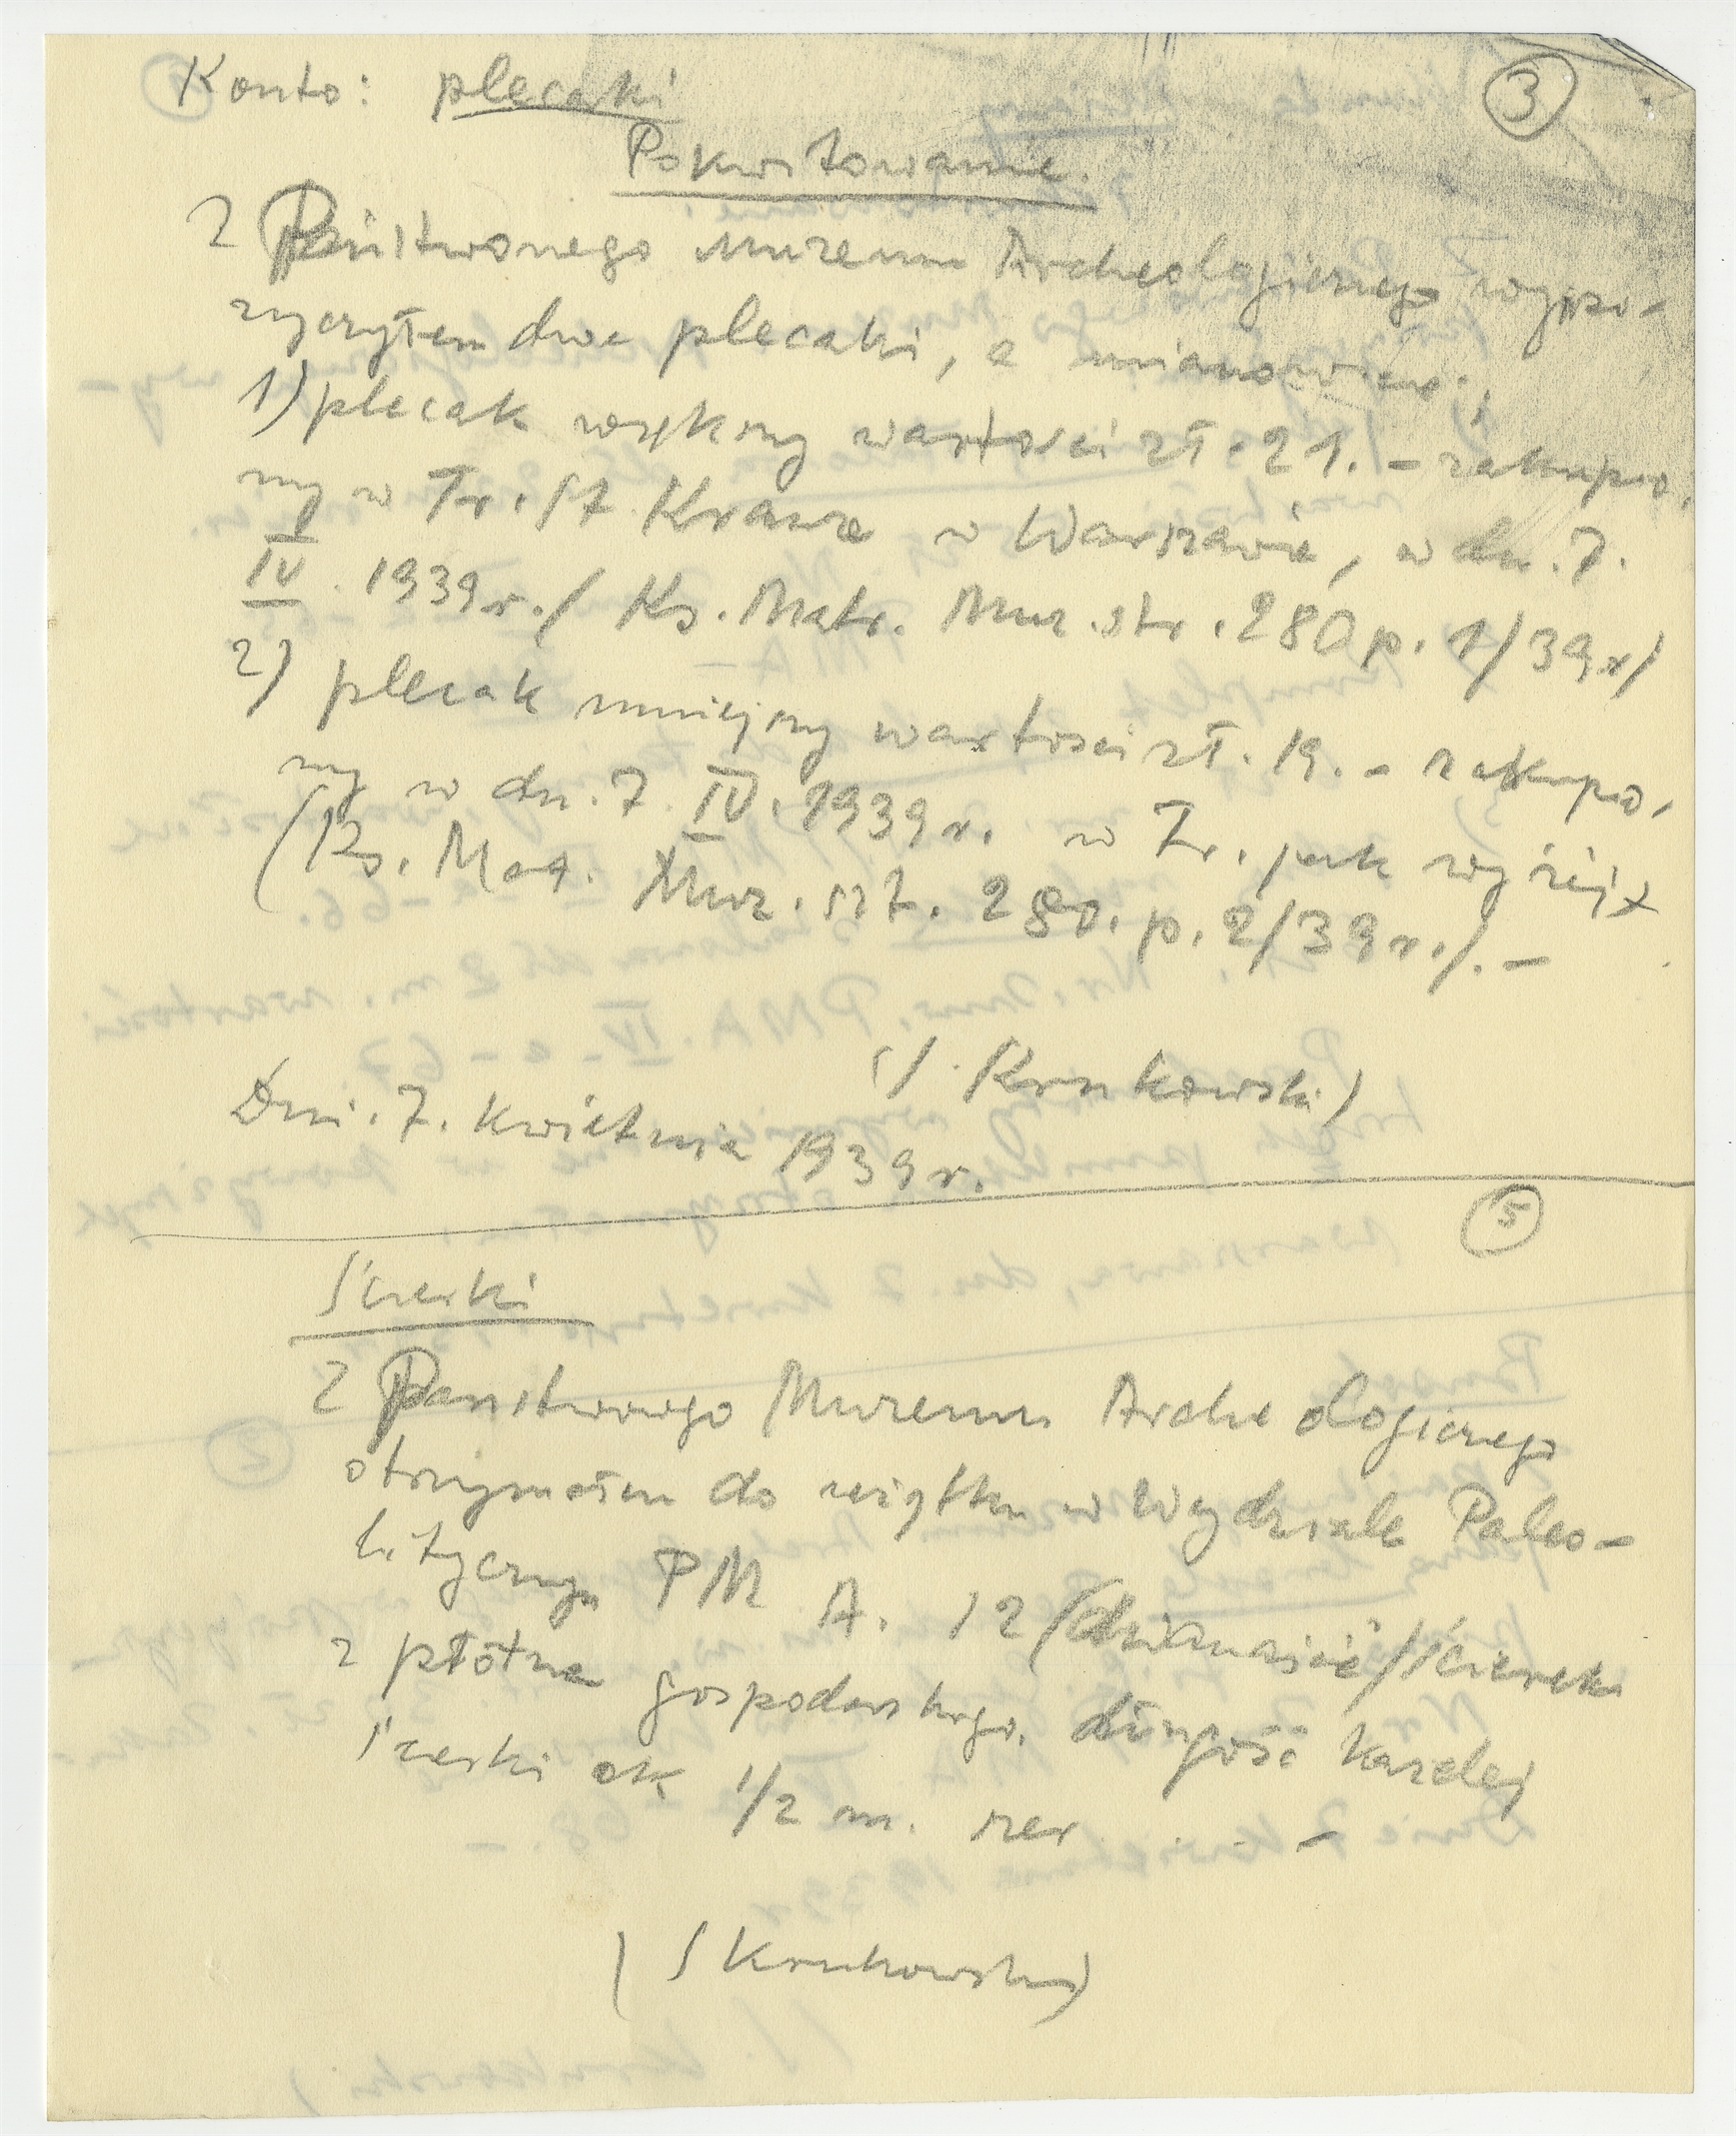 Konto: plecaki
3
Pokwitowanie.
Z Państwowego Muzeum Archeologicznego wypo-
życzyłem dwa plecaki, a mianowicie:
1) plecak większy wartości zł. 21. - zakupio.
ny w Fr. St. Krauze w Warszawie, w dn. 7.
IV. 1939 r. / Ks. Matr. Muz. str. 280 p. 1/39 r/
2) plecak mniejszy wartości zł. 19. - zakupio.
ny w dn. 7. IV. 1939 r. w Fr. jak wyżej
(Ks. Mat. Muz. szt. 280. p. 2/39 r./. -
(S. Krukowski)
Dni. 7. kwietnia 1939 r.
5
Ścierki
Z Państwowego Muzeum Archeologicznego
otrzymałem do użytku w Wydziale Paleo-
litycznym PM A. 12 (dwanaście) ścierek
z płótna gospodarskiego, długość każdej
ścierki ok 1/2 m. szer . . -
(S Krukowski)